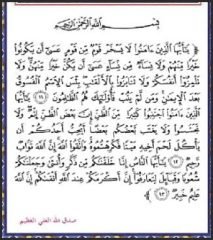 بِسْمِ اللَّهِ الرَّحْمَنِ الرَّحِيمِ
يَٰٓأَيُّهَا ٱلَّذِينَ ءَامَنُوا۟ لَا يَسْخَرْ قَوْمٌ مِّن قَوْمٍ عَسَىٰٓ أَن يَكُونُوا۟
خَيْرًا مِّنْهُمْ وَلَا نِسَآءٌ مِّن نِّسَآءٍ عَسَىٰٓ أَن يَكُنَّ خَيْرًا مِّنْهُنَّ وَلَا
تَلْمِزُوٓا۟ أَنفُسَكُمْ وَلَا تَنَابَزُوا۟ بِٱلْأَلْقَٰبِ بِئْسَ ٱلِٱسْمُ ٱلْفُسُوقُ
بَعْدَ ٱلْإِيمَٰنِ وَمَن لَّمْ يَتُبْ فَأُو۟لَٰٓئِكَ هُمُ ٱلظَّٰلِمُونَ ﴿١١﴾ يَٰٓأَيُّهَا ٱلَّذِينَ
ءَامَنُوا۟ ٱجْتَنِبُوا۟ كَثِيرًا مِّنَ ٱلظَّنِّ إِنَّ بَعْضَ ٱلظَّنِّ إِثْمٌ وَلَا
تَجَسَّسُوا۟ وَلَا يَغْتَب بَّعْضُكُم بَعْضًا أَيُحِبُّ أَحَدُكُمْ أَن
يَأْكُلَ لَحْمَ أَخِيهِ مَيْتًا فَكَرِهْتُمُوهُ وَٱتَّقُوا۟ ٱللَّهَ إِنَّ ٱللَّهَ تَوَّابٌ
رَّحِيمٌ ﴿١٢﴾ يَٰٓأَيُّهَا ٱلنَّاسُ إِنَّا خَلَقْنَٰكُم مِّن ذَكَرٍ وَأُنثَىٰ وَجَعَلْنَٰكُمْ
شُعُوبًا وَقَبَآئِلَ لِتَعَارَفُوٓا۟ إِنَّ أَكْرَمَكُمْ عِندَ ٱللَّهِ أَتْقَىٰكُمْ إِنَّ ٱللَّهَ
عَلِيمٌ خَبِيرٌ ﴿١٣﴾
صدق الله العلي العظيم